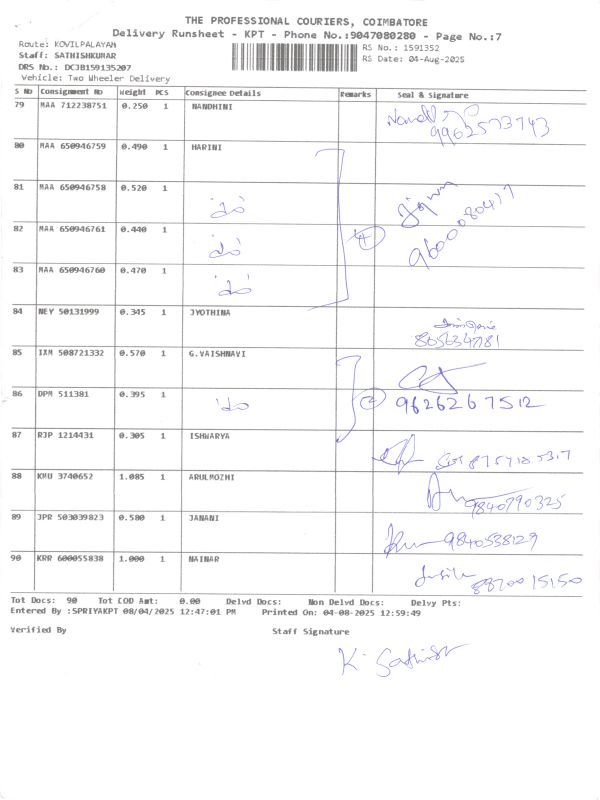 THE PROFESSIONAL COURIERS, COIMBATORE
Delivery Runsheet - KPT - Phone No.:9047080280 - Page No.:7
Route: KOVILPALAYAM
RS No.: 1591352
Staff: SATHISHKUMAR
RS Date: 04-Aug-2025
DRS No.: DCJB159135207
Vehicle: Two Wheeler Delivery
S NO Consignment NO Weight PCS Consignee Details Remarks Seal & Signature
79 MAA 712238751 0.250 1 NANDHINI
9962573743
80 MAA 650946759 0.490 1 HARINI
81 MAA 650946758 0.520 1
9600080417
82 MAA 650946761 0.440 1 4
83 MAA 650946760 0.470 1
84 NEY 50131999 0.345 1 JYOTHINA
85 IXM 508721332 0.570 1 G.VAISHNAVI
86 DPM 511381 0.395 1 2 9626267512
87 RJP 1214431 0.305 1 ISHWARYA
88 KMU 3740652 1.085 1 ARULMOZHI
9840790325
89 JPR 503039823 0.580 1 JANANI
9840538129
90 KRR 600055838 1.000 1 NAINAR
8870015150
Tot Docs: 90 Tot COD Amt: 0.00 Delvd Docs: Non Delvd Docs: Delvy Pts:
Entered By :SPRIYAKPT 08/04/2025 12:47:01 PM Printed On: 04-08-2025 12:59:49
Verified By Staff Signature
K. Sathish